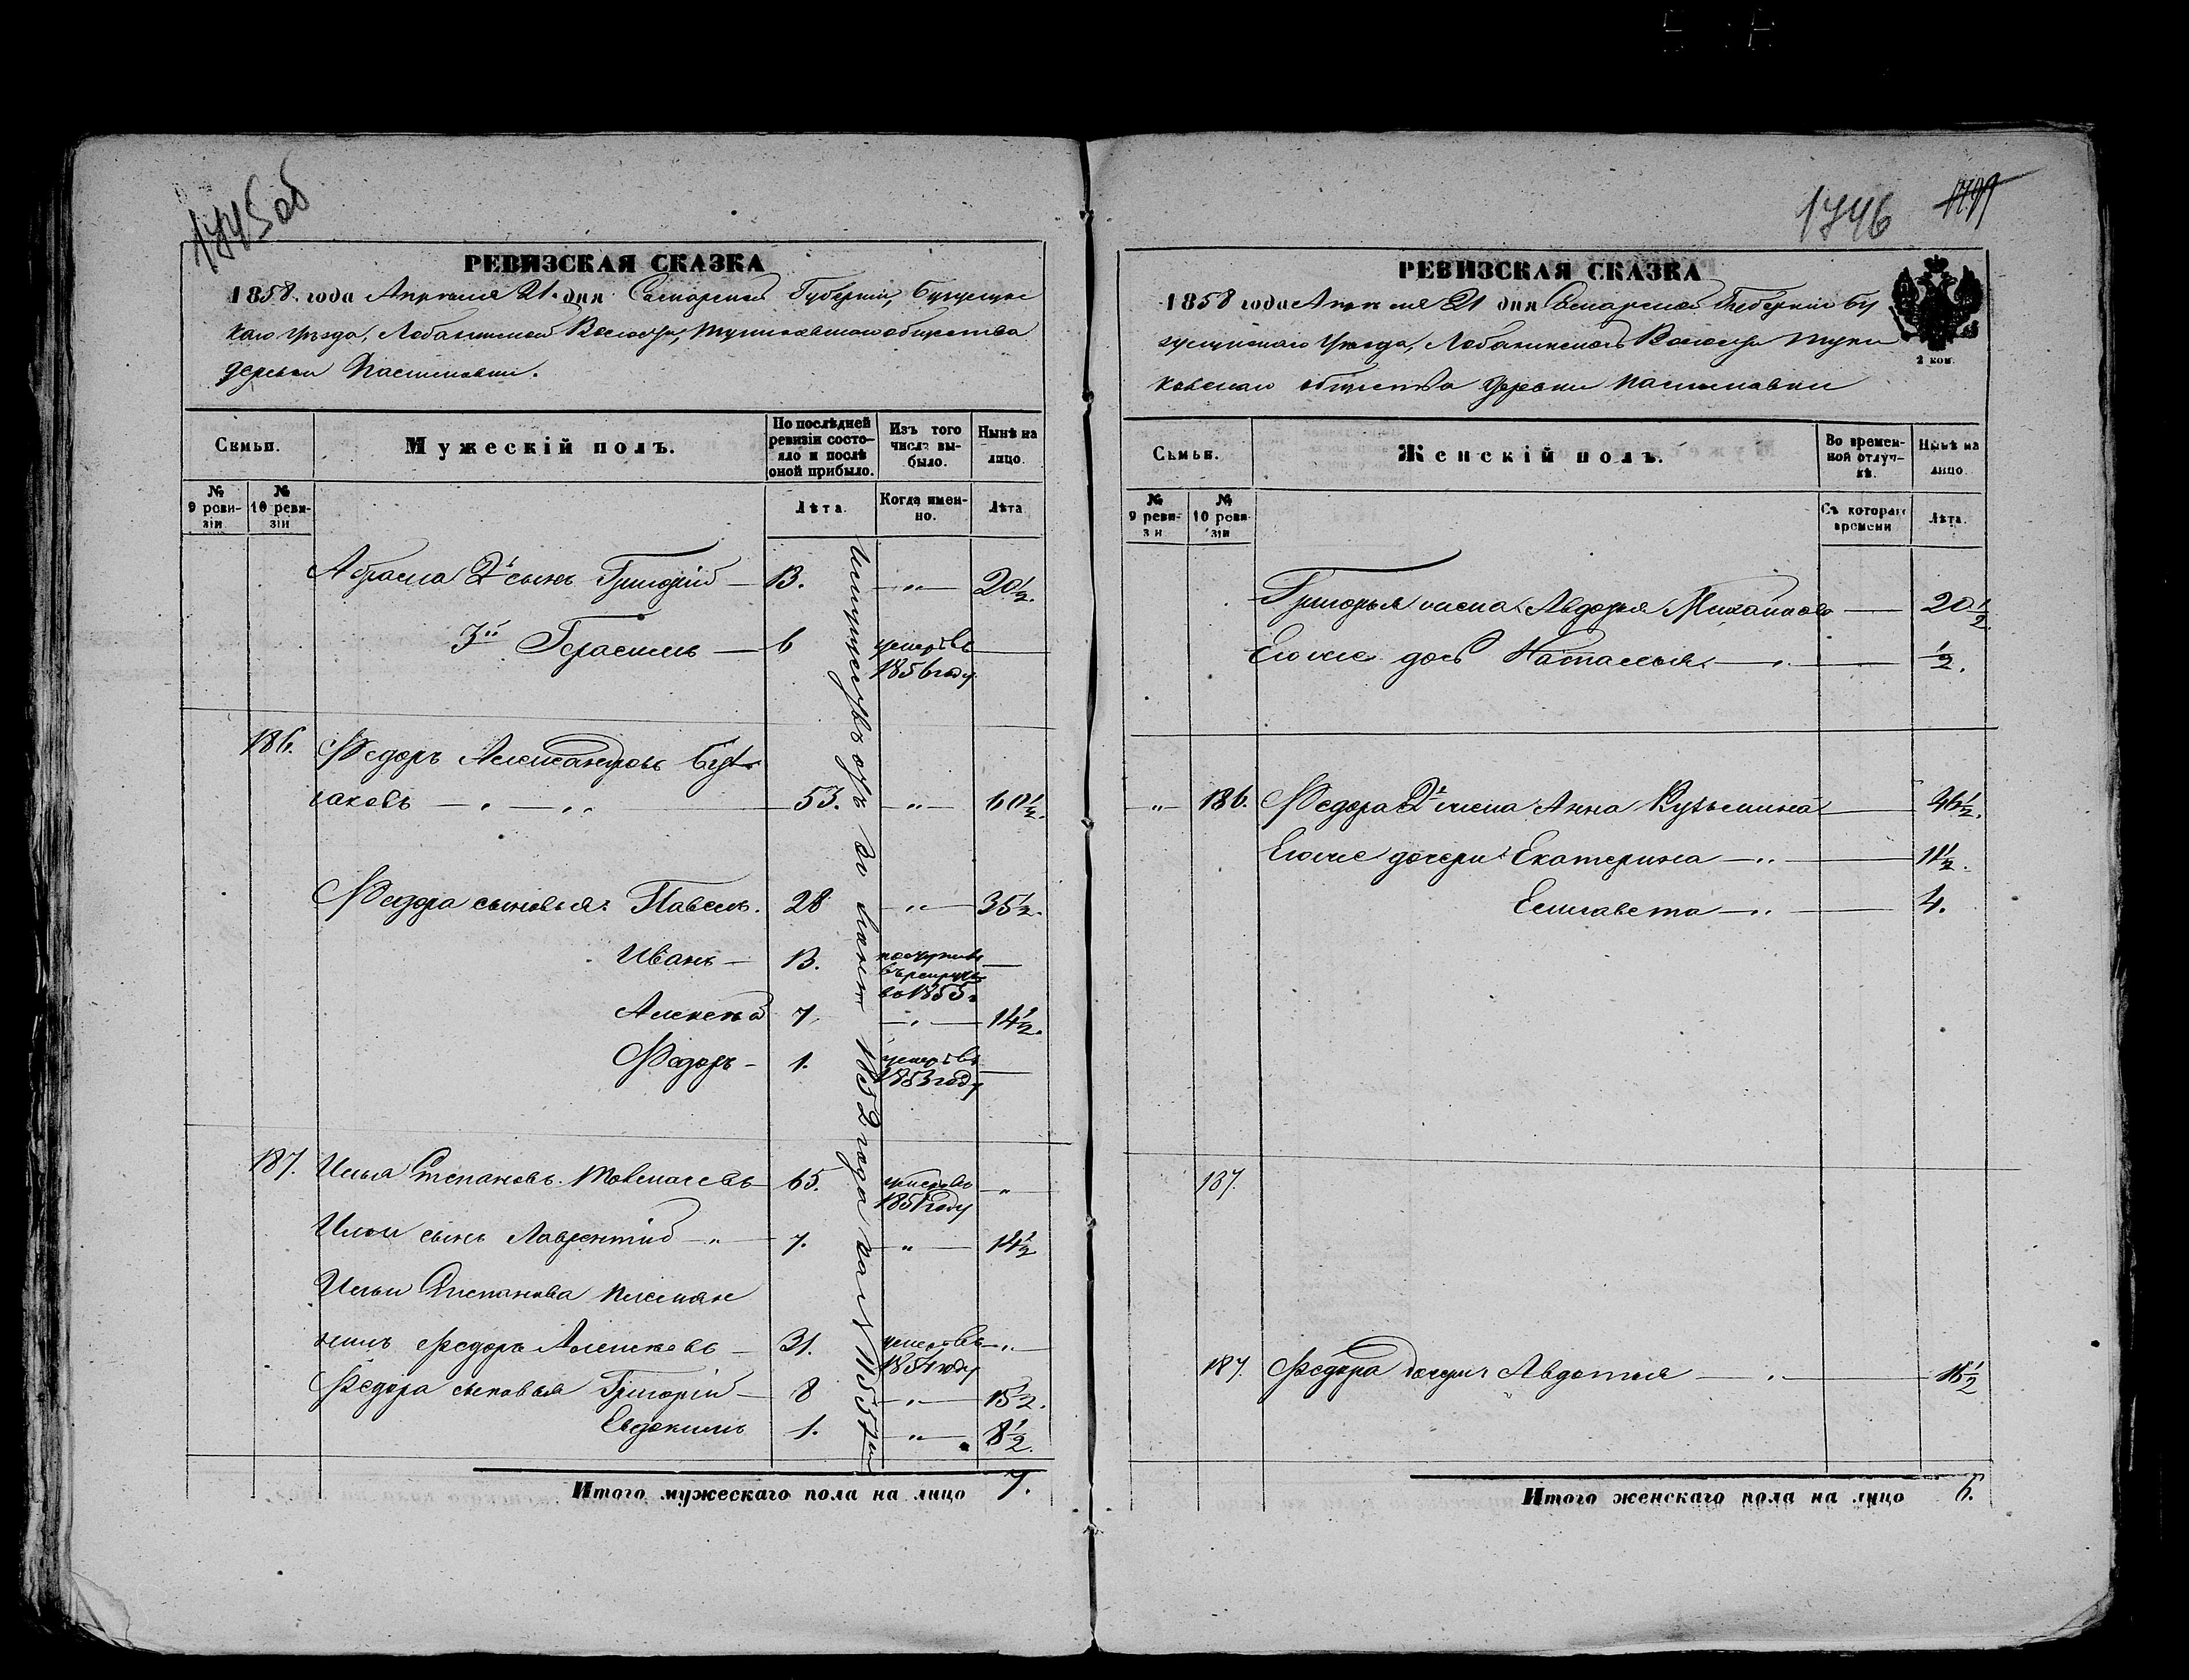 1745 об
РЕВИЗСКАЯ СКАЗКА
1858. года Апреля 21. дня Самарской Губернии, Бузулукс
каго Уезда, Лобазинской Волости, общества
деревни
Семьи.
Мужескій полъ.
По послѣдней ревизіи состояло и послѣ оной прибыло.
Изъ того числа выбыло.
Нынѣ на лицо.
№ 9 ревизіи
№ 10 ревизіи
Лѣта.
Когда именно.
Лѣта
Абрама 2й сынъ Григорій — 13. — " — 20½.
3й Герасимъ — 6 умеръ въ 1856 году —
186. Федоръ Александровъ
53. — " — 60½.
Федора сыновья: Павелъ. 28 — " — 35½.
Иванъ — 13. въ рекруты во 1855 г —
Алексѣй 7. — " — 14½.
Федоръ — 1. умеръ въ 1853 году —
187. Илья Степановъ 65. умеръ въ 1851 году — "
Ильи сынъ Лаврентій — " — 7. " — 14½
Ильи Степанова племян
никъ Федоръ — 31. умеръ въ 1854 году — " —
Федора сыновья Григорій — 8 — " — 15½.
Евдокимъ 1. — " — 8½.
1852 года
Итого мужескаго пола на лицо 7.
1746
РЕВИЗСКАЯ СКАЗКА
1858 года Апреля 21 дня Самарской Губерніи Бу
зулукскаго Уезда, Лобазинской Волости
общества деревни
2 коп.
Семьи.
Женскій полъ.
Во временной отлучкѣ.
Нынѣ на лицо.
№ 9 ревизіи
№ 10 ревизіи
Съ котораго времени
Лѣта.
Григорья жена Авдотья Михайлова — 20½
Егоже дочь Настасья — " — ½.
" — 186. Федора 2я жена Анна Кузьмина — 46½.
Егоже дочери: Екатерина — " — 11½.
Елисавета — " — 4.
187.
187. Федора дочери Авдотья — " — 16½
Итого женскаго пола на лицо 6.